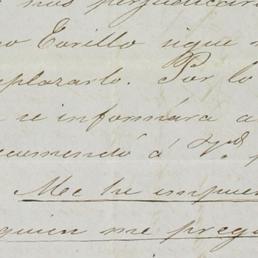 nos perjudicar
Carillo sigue
explorarlo. Por lo
se informára a
recomendó á Vd.
Me he impue
quien me pregu